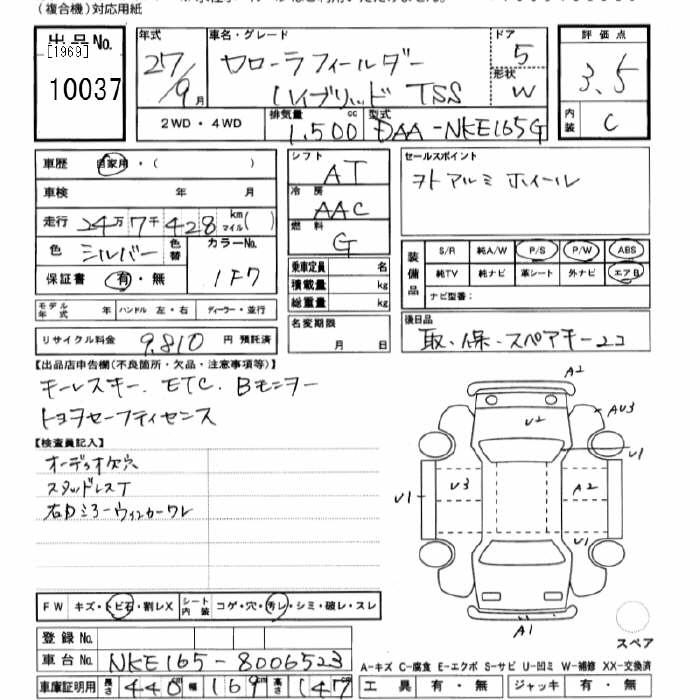 (複合機)対応用紙
出品No.
[1969]
10037
年式
27/9月
車名・グレード
カローラフィールダー
ハイブリッド TSS
ドア
5
形状
W
評価点
3.5
内装
C
2WD・4WD
排気量
1.500cc
型式
DAA-NKE165G
車歴 自家用・( )
車検 年 月
走行 24万7千428km マイル( )
色 シルバー 色替 カラーNo. 1F7
保証書 有・無
シフト AT
冷房 AAC
燃料 G
乗車定員 名
積載量 kg
総重量 kg
セールスポイント
ヲトアルミホイール
装備品
S/R 純A/W P/S P/W ABS
純TV 純ナビ 革シート 外ナビ エアB
ナビ型番:
モデル年式 年 ハンドル 左・右 ディーラー・並行
リサイクル料金 9.810 円 預託済
名変期限 月 日
後日品
取.保.スペアキー2コ
【出品店申告欄(不良箇所・欠品・注意事項等)】
キーレスキー. ETC. Bモニター
トヨタセーフティセンス
【検査員記入】
オーディオ欠穴
スタッドレスT
右Dミラーウィンカーワレ
A2
AU3
U2
U1
U1
U3
A2
U1
A1
スペア
FW キズ・トビ石・割レX シート内装 コゲ・穴・汚レ・シミ・破レ・スレ
登録No.
車台No. NKE165-8006523
車庫証明用 長さ 440 幅 169 高さ 147
A-キズ C-腐食 E-エクボ S-サビ U-凹ミ W-補修 XX-交換済
工具 有・無 ジャッキ 有・無